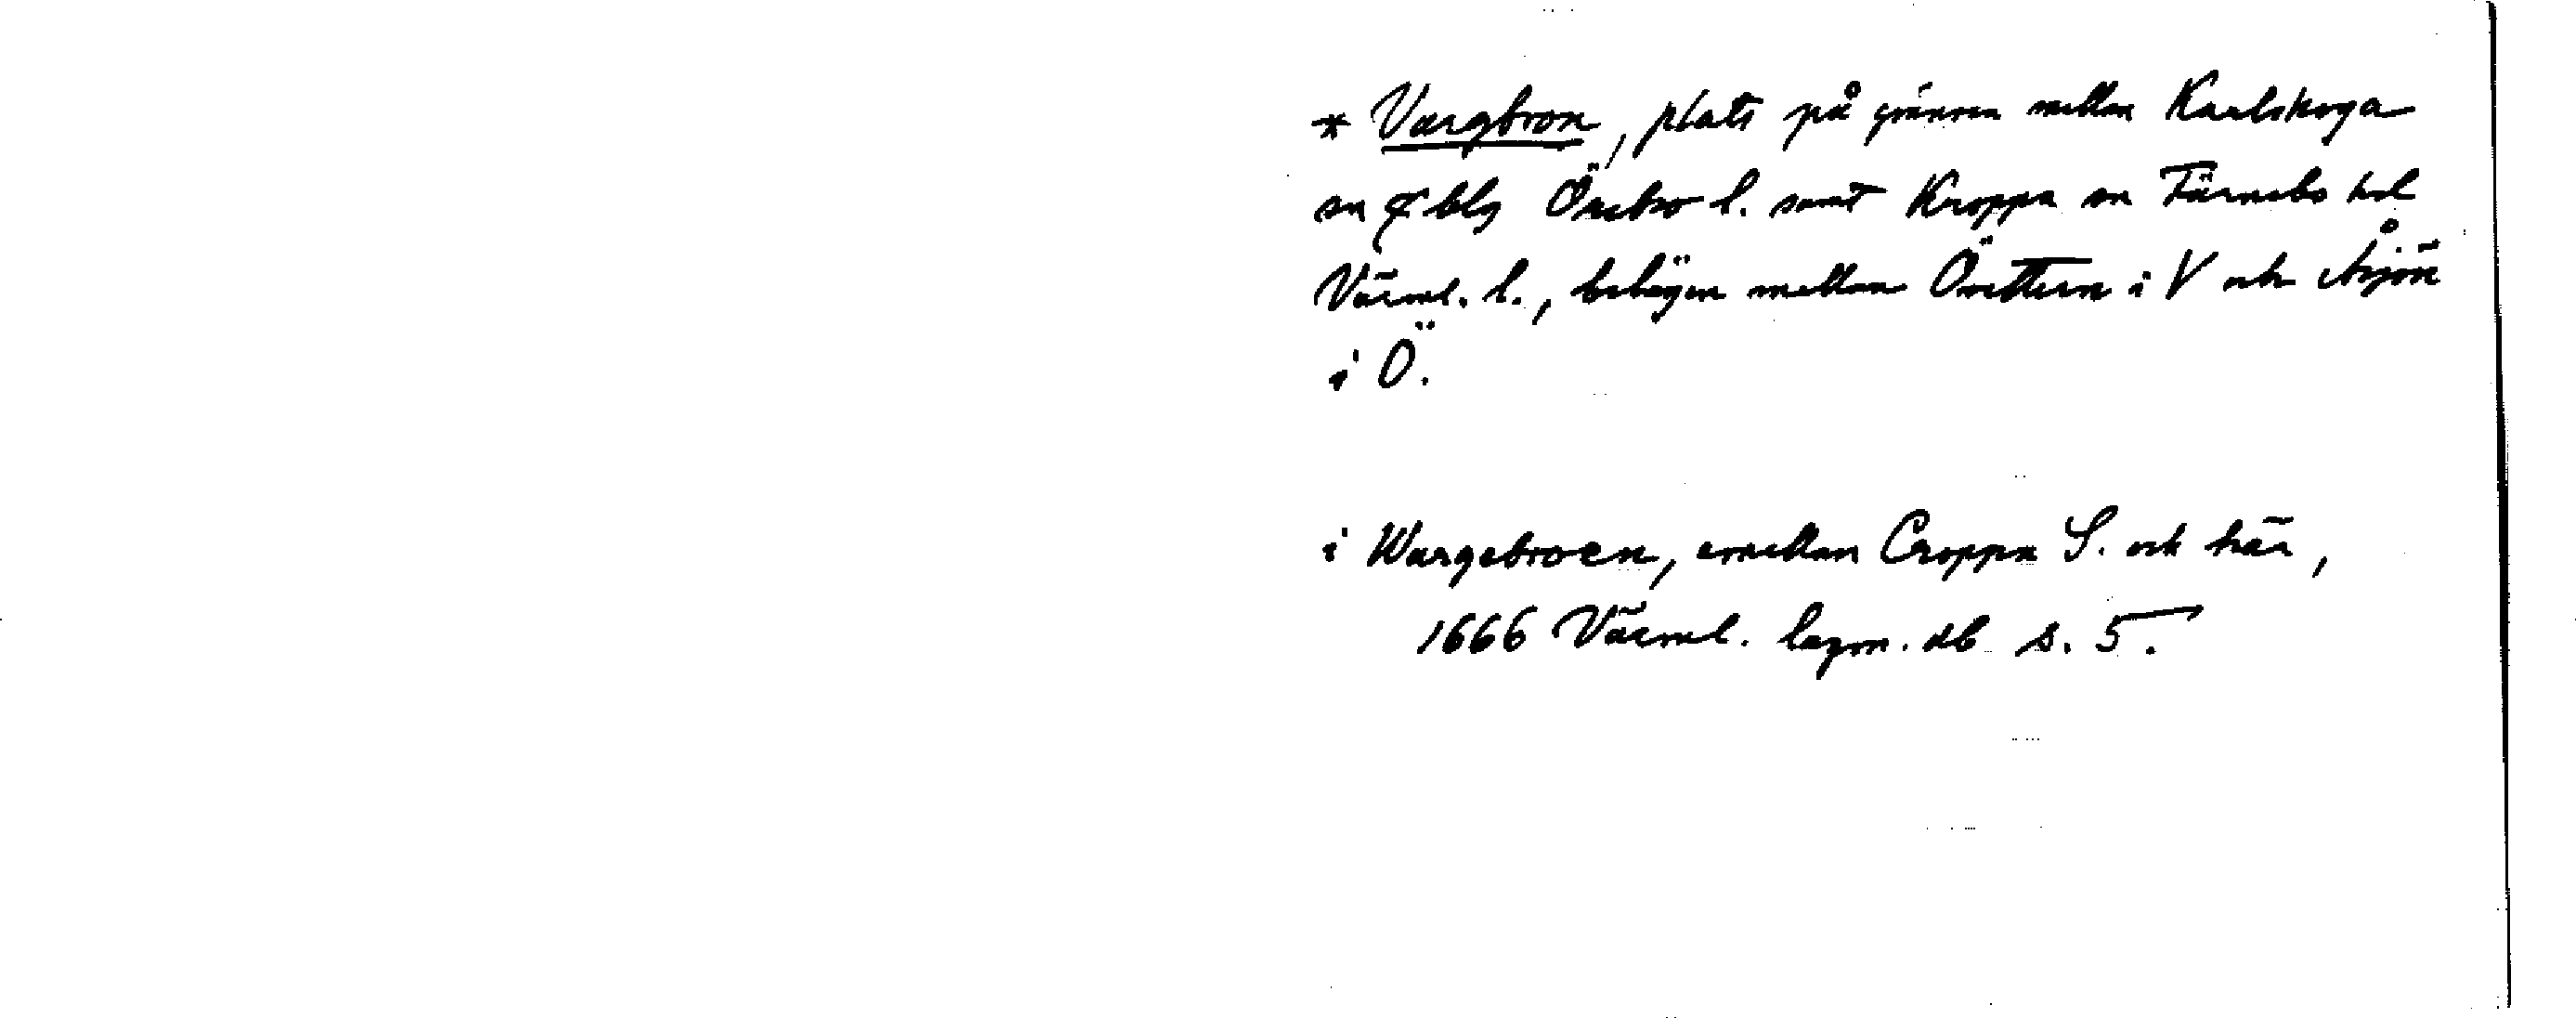 * Vargbron, plats på gränsen mellan Karlskoga
sn o bg Örebro l. samt Kroppa sn Färnebo hd
Värml. l., belägen mellan Örvettern i V och Åsjön
i Ö.
i Wargebroen, emellan Croppa S. och här,
1666 Värml. lagm. db s. 5.